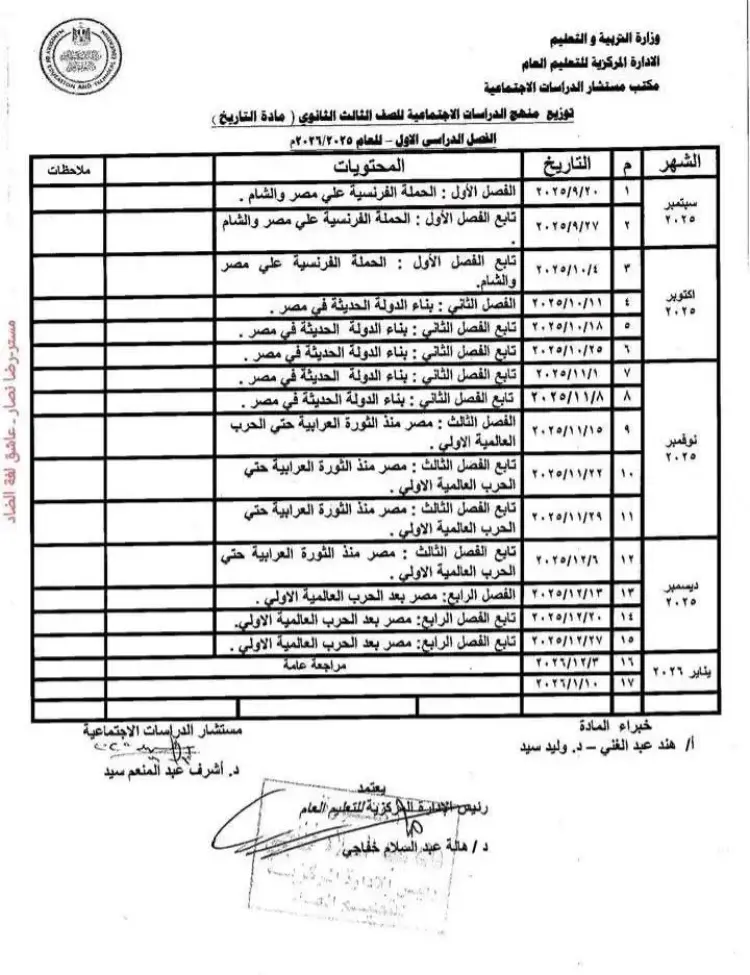 وزارة التربية و التعليم
الادارة المركزية للتعليم العام
مكتب مستشار الدراسات الاجتماعية
توزيع منهج الدراسات الاجتماعية للصف الثالث الثانوي ( مادة التاريخ )
الفصل الدراسى الاول - للعام ٢٠٢٦/٢٠٢٥م
الشهر م التاريخ المحتويات ملاحظات
سبتمبر ٢٠٢٥
١ ٢٠٢٥/٩/٢٠ الفصل الأول : الحملة الفرنسية علي مصر والشام .
٢ ٢٠٢٥/٩/٢٧ تابع الفصل الأول : الحملة الفرنسية علي مصر والشام
.
اكتوبر ٢٠٢٥
٣ ٢٠٢٥/١٠/٤ تابع الفصل الأول : الحملة الفرنسية علي مصر
والشام.
٤ ٢٠٢٥/١٠/١١ الفصل الثاني : بناء الدولة الحديثة في مصر .
٥ ٢٠٢٥/١٠/١٨ تابع الفصل الثاني : بناء الدولة الحديثة في مصر .
٦ ٢٠٢٥/١٠/٢٥ تابع الفصل الثاني : بناء الدولة الحديثة في مصر .
نوفمبر ٢٠٢٥
٧ ٢٠٢٥/١١/١ تابع الفصل الثاني : بناء الدولة الحديثة في مصر .
٨ ٢٠٢٥/١١/٨ تابع الفصل الثاني : بناء الدولة الحديثة في مصر .
٩ ٢٠٢٥/١١/١٥ الفصل الثالث : مصر منذ الثورة العرابية حتي الحرب
العالمية الاولي .
١٠ ٢٠٢٥/١١/٢٢ تابع الفصل الثالث : مصر منذ الثورة العرابية حتي
الحرب العالمية الاولي .
١١ ٢٠٢٥/١١/٢٩ تابع الفصل الثالث : مصر منذ الثورة العرابية حتي
الحرب العالمية الاولي .
ديسمبر ٢٠٢٥
١٢ ٢٠٢٥/١٢/٦ تابع الفصل الثالث : مصر منذ الثورة العرابية حتي
الحرب العالمية الاولي .
١٣ ٢٠٢٥/١٢/١٣ الفصل الرابع: مصر بعد الحرب العالمية الاولي .
١٤ ٢٠٢٥/١٢/٢٠ تابع الفصل الرابع: مصر بعد الحرب العالمية الاولي.
١٥ ٢٠٢٥/١٢/٢٧ تابع الفصل الرابع: مصر بعد الحرب العالمية الاولي .
يناير ٢٠٢٦
١٦ ٢٠٢٦/١٢/٣ مراجعة عامة
١٧ ٢٠٢٦/١/١٠
خبراء المادة
أ/ هند عبد الغني – د. وليد سيد
مستشار الدراسات الاجتماعية
د. أشرف عبد المنعم سيد
يعتمد
رئيس الإدارة المركزية للتعليم العام
د / هالة عبد السلام خفاجي
مستر-رضا نصار-عاشق لغة الضاد